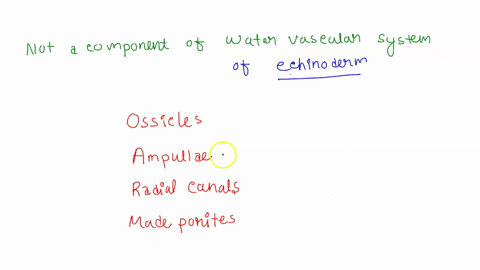 Not a component of water vascular system
of echinoderm
Ossicles
Ampullae
Radial canals
Made porites